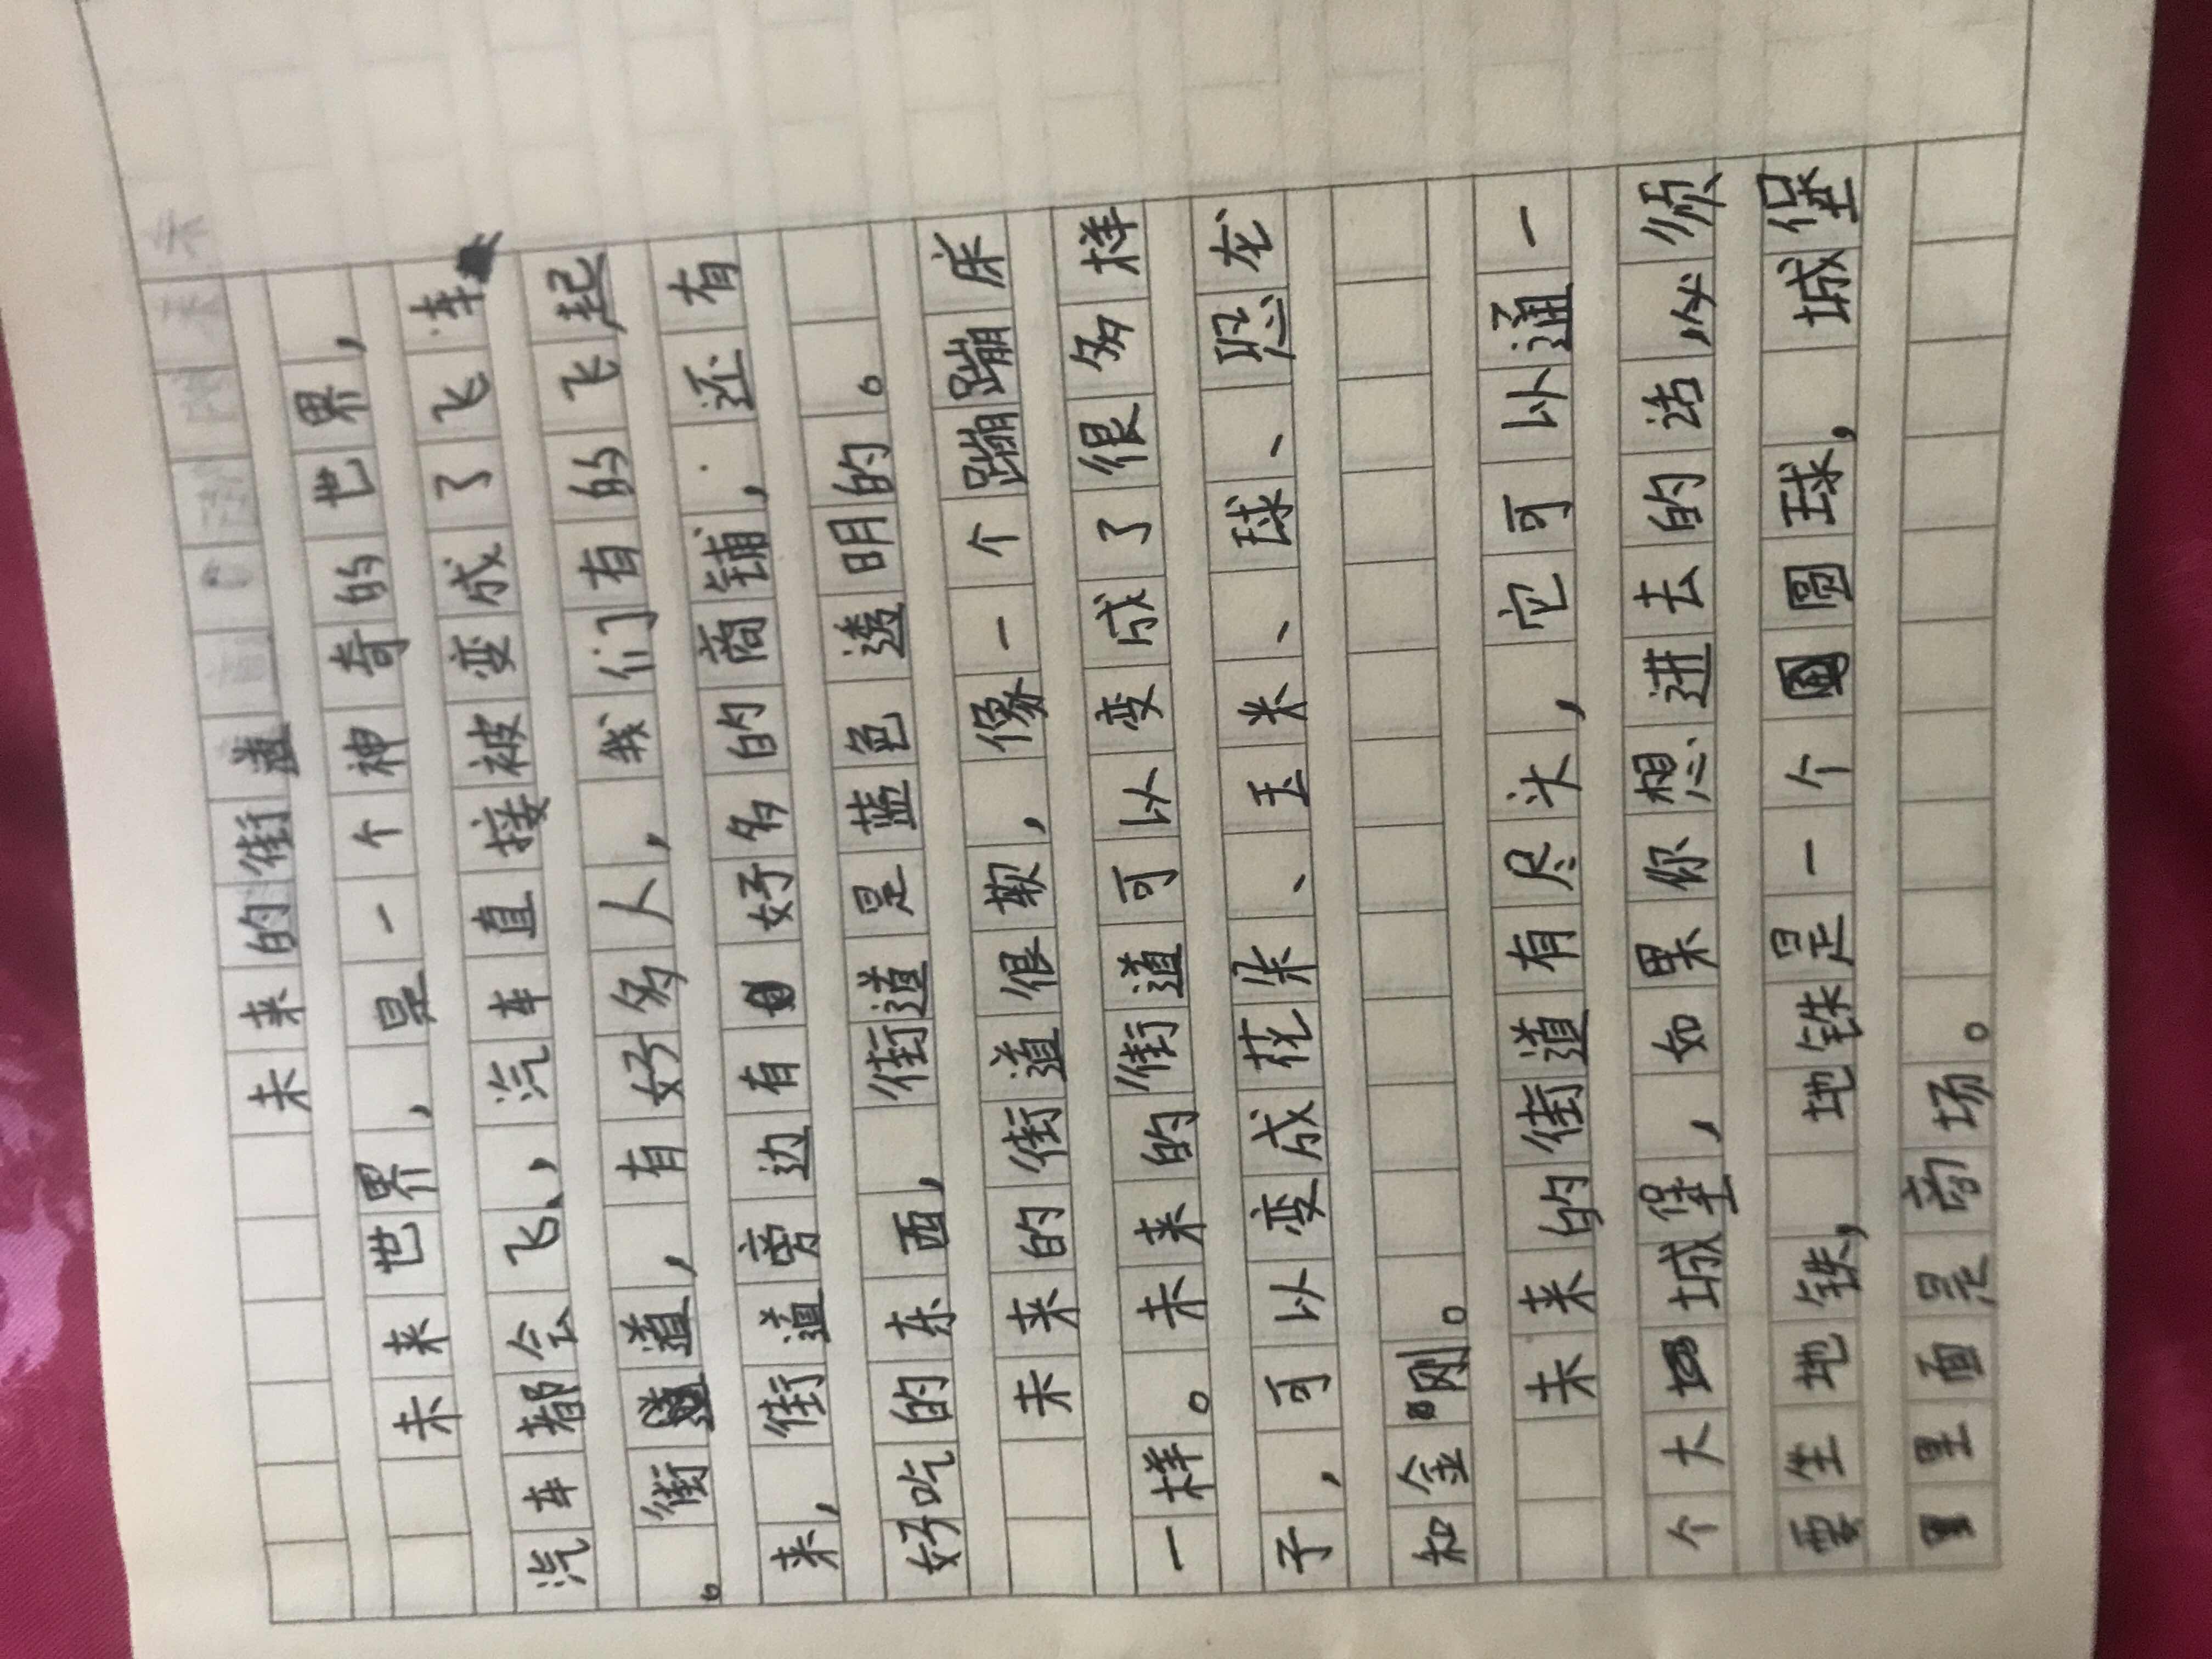 未来的街道
未来世界，是一个神奇的世界，
汽车都会飞，汽车直接被变成了飞车
。街道，有好多人，我们有的飞起
来，街道旁边有好多的商铺，还有
好吃的东西，街道是蓝色透明的。
未来的街道很软，像一个蹦蹦床
一样。未来的街道可以变成了很多样
子，可以变成花朵、玉米、球、恐龙
和金刚。
未来的街道有尽头，它可以通一
个大城堡，如果你想进去的话必须
坐地铁，地铁是一个圆球，城堡
里面是商场。